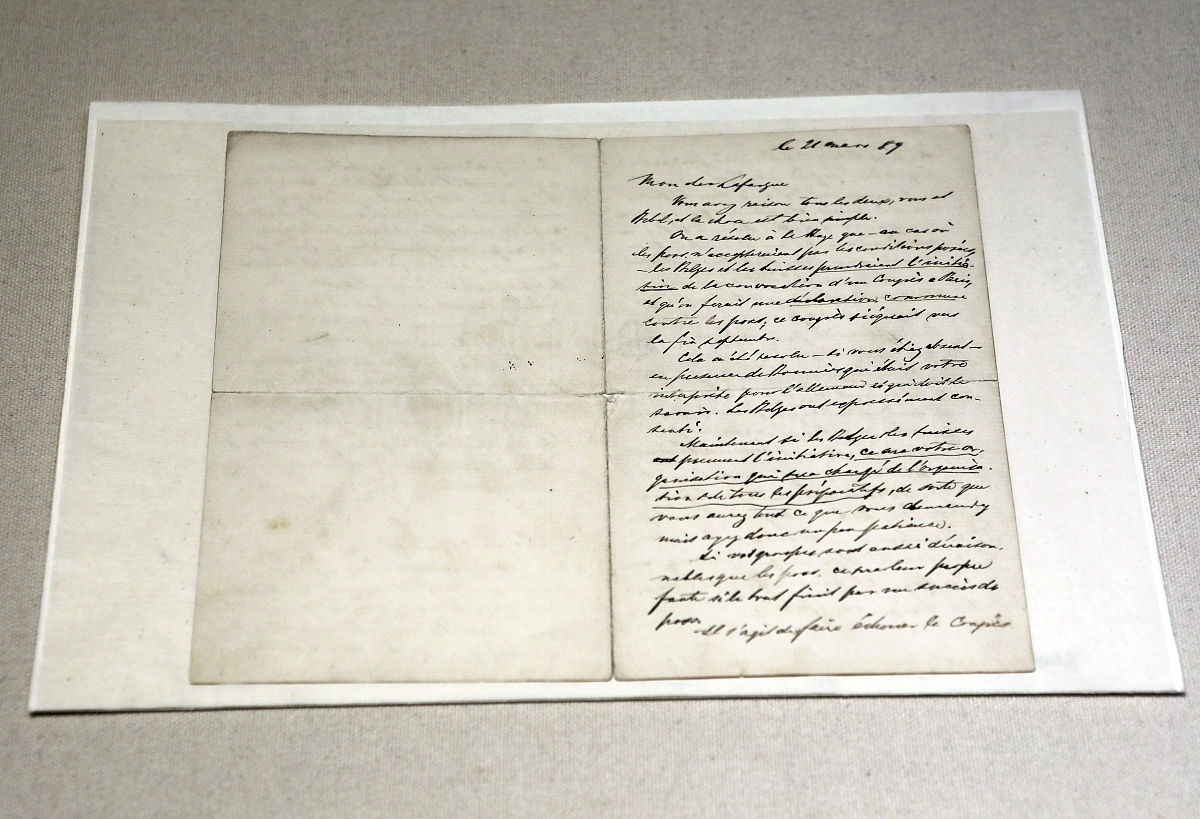 le 21 mars 89
Mon cher Lafargue
Vous avez raison tous les deux, vous et
Bebel, et la chose est bien simple.
On a résolu à la Haye que – au cas où
les poss. n'accepteraient pas les conditions posées,
– les Belges et les Suisses prendraient l'initia-
tive de la convocation d'un Congrès à Paris,
et qu'on ferait une déclaration commune
contre les poss.; ce congrès siégerait vers
la fin septembre.
Cela a été résolu – si vous étiez absent –
en présence de Bonnier qui était votre
interprète pour l'allemand et qui doit le
savoir. Les Belges ont expressément con-
senti.
Maintenant si les Belges et les Suisses
prennent l'initiative, ce sera votre or-
ganisation qui sera chargé de l'organisa-
tion et de tous les préparatifs, de sorte que
vous aurez tout ce que vous demandez
mais ayez donc un peu patience.
Si vos groupes sont aussi déraison-
nables que les poss. ce sera leur propre
faute si le tout finit par un succès des
poss.
Il s'agit de faire échouer le Congrès